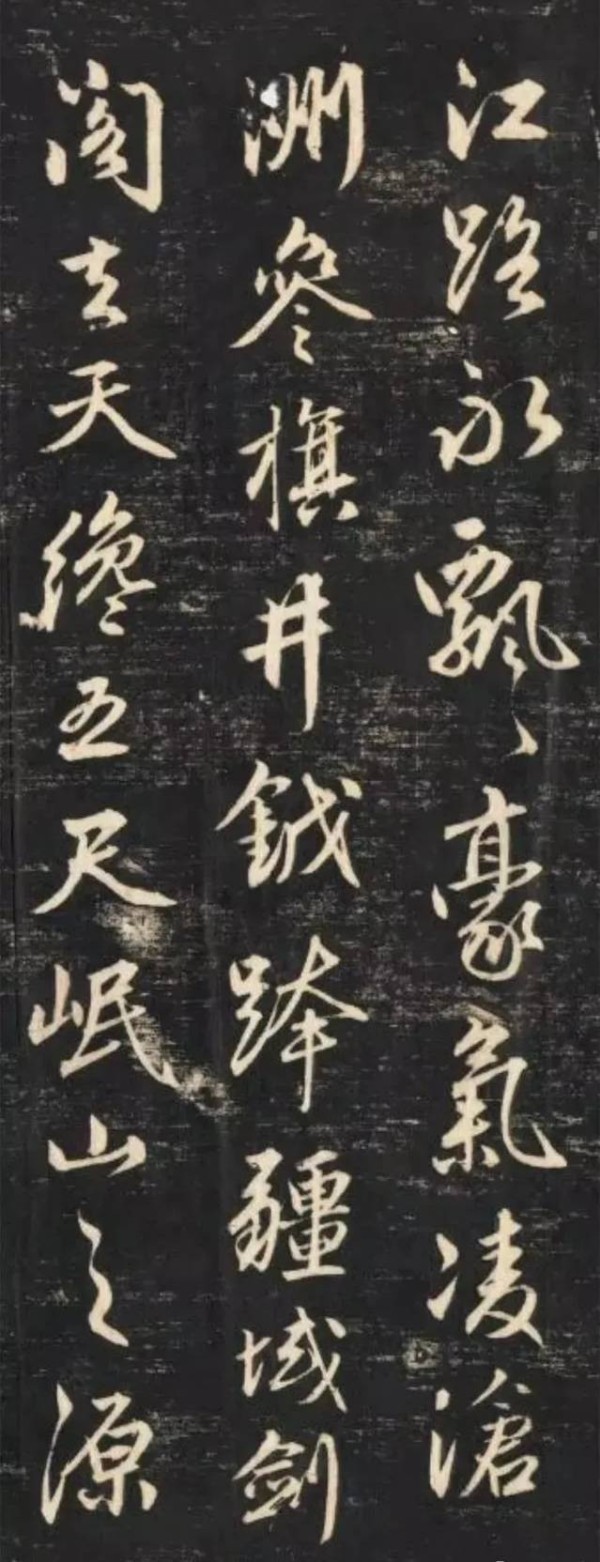 江路永飄〻豪氣凌滄
洲參旗井鉞跨疆域劍
閣去天纔五尺岷山之源